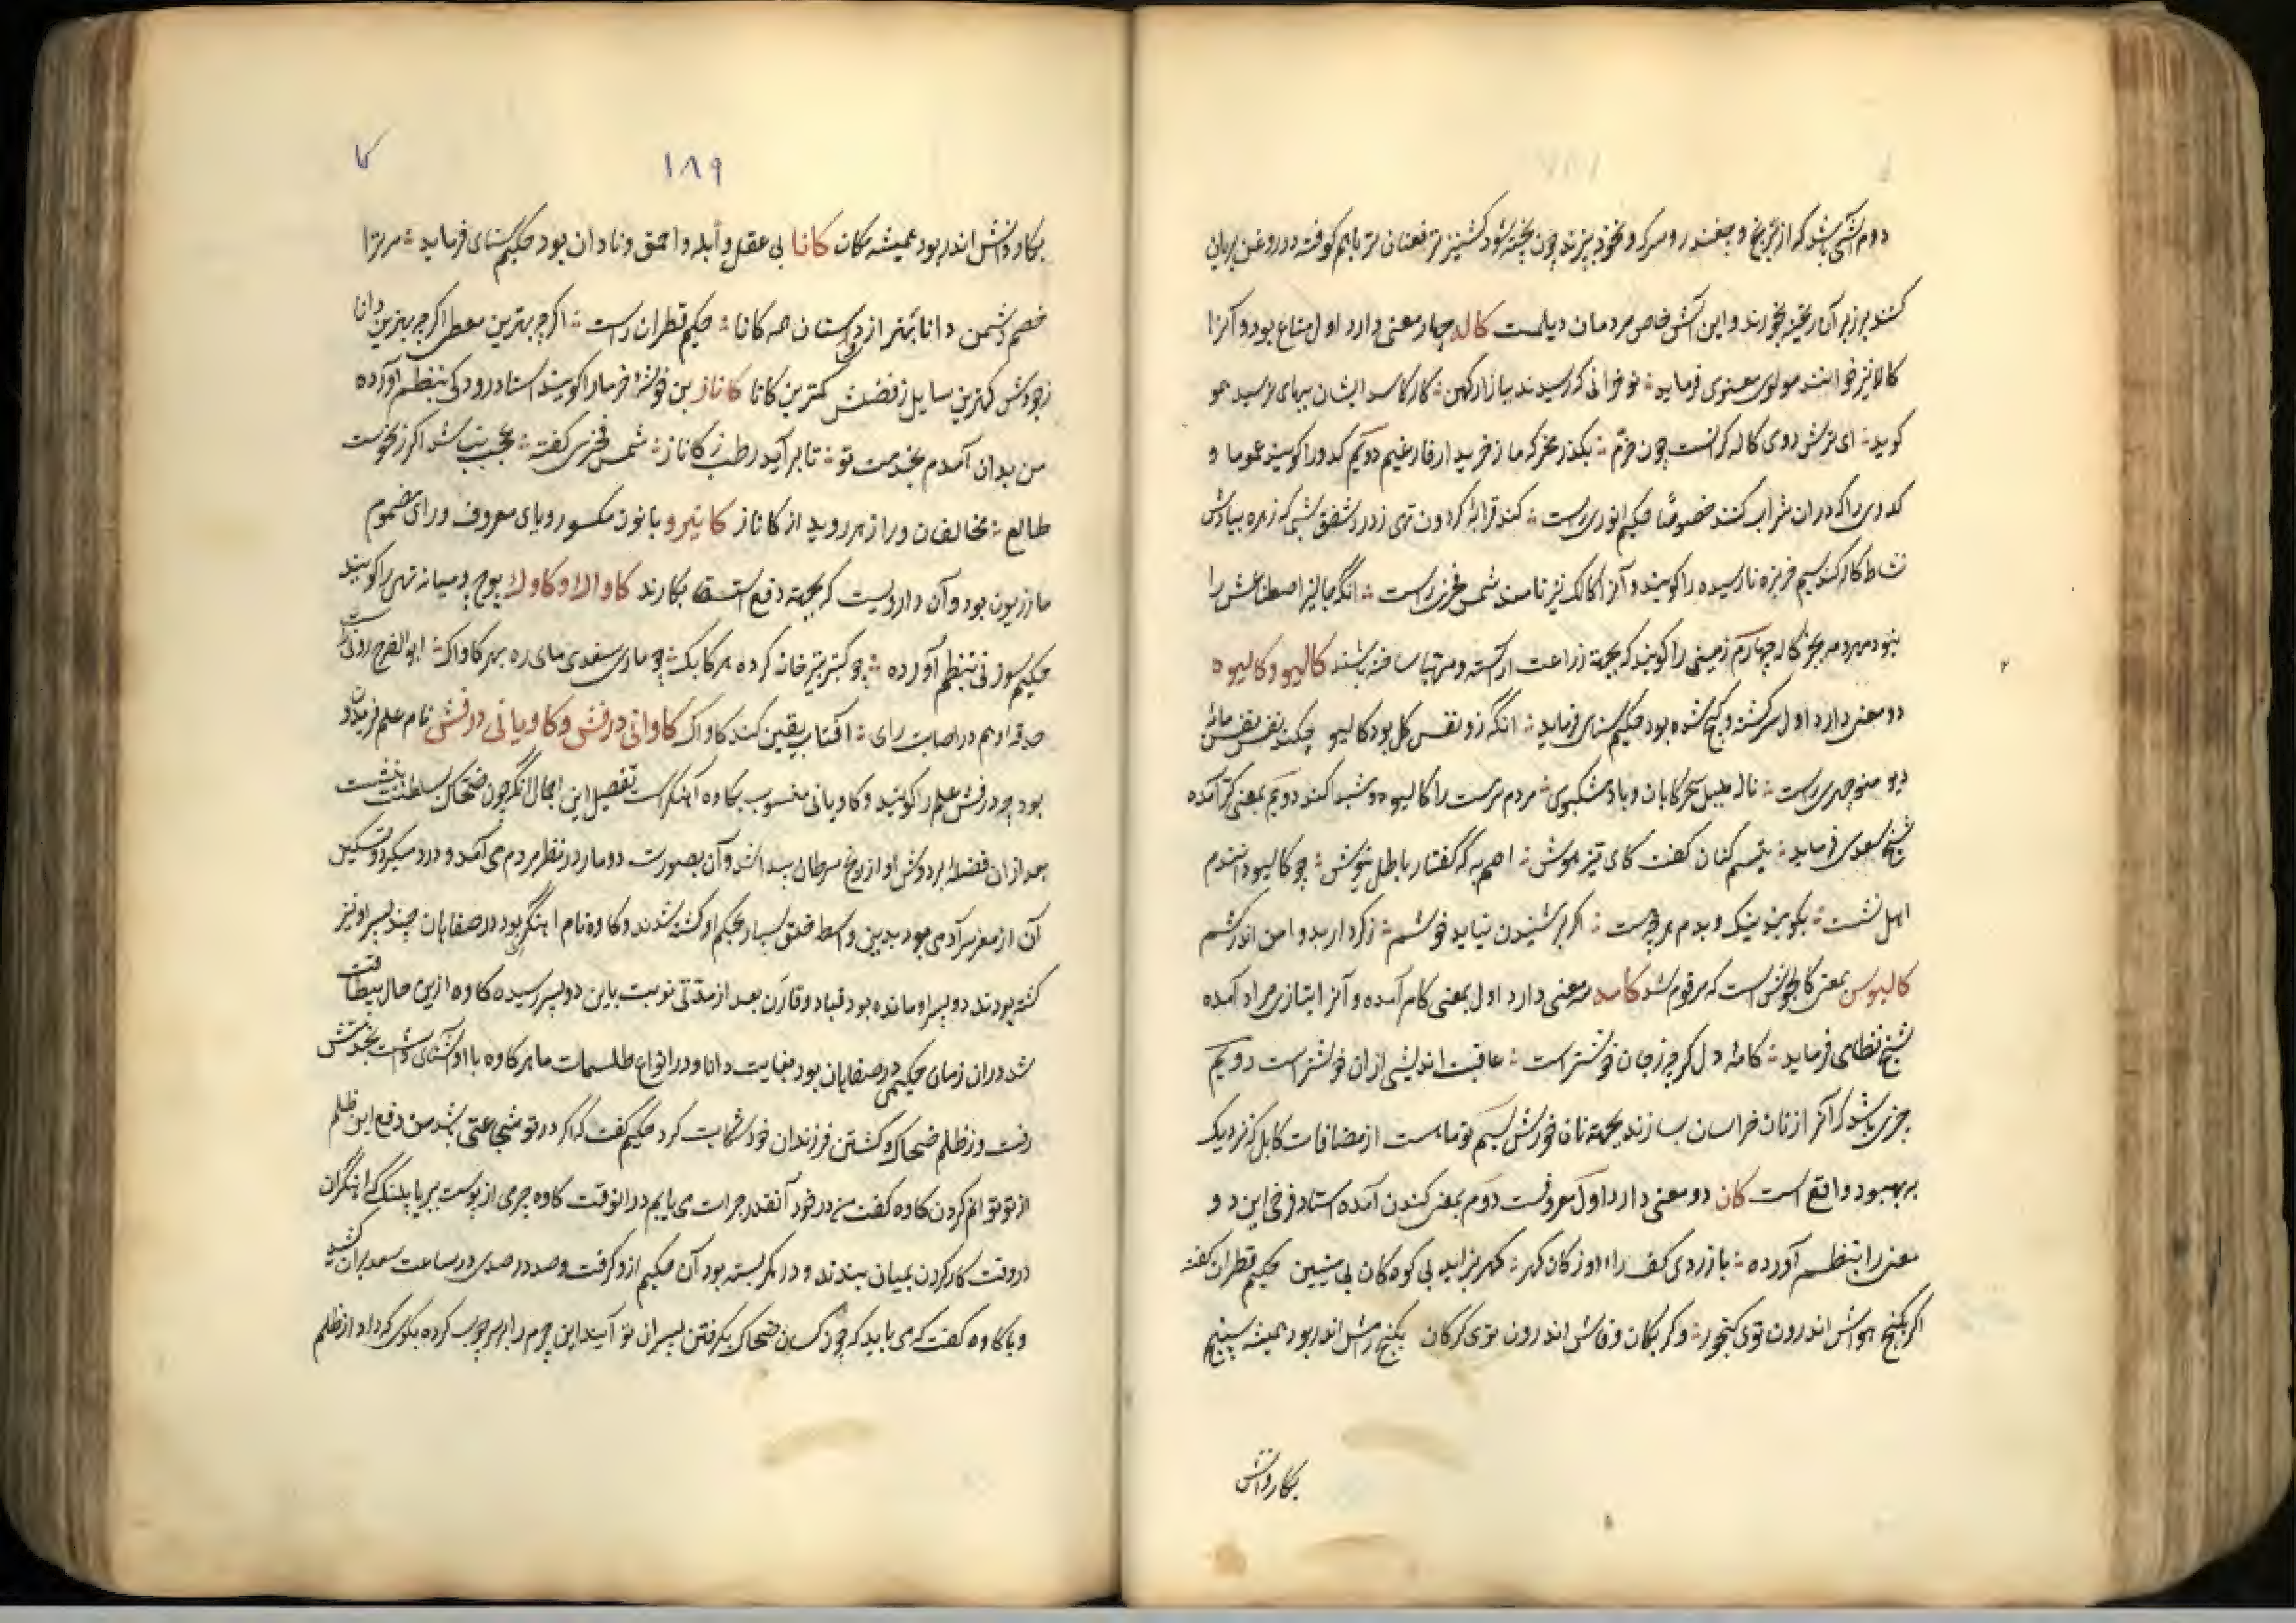 دوم آشی باشد که از برنج و چغندر و سرکه و نخود بپزند چون پخته شود کشنیز تر نعنان تر باهم کوفته در روغن بریان
کنند بر زبر آن ریخته بخورند و این آش خاص مردمان دیلمست کاله چهار معنی دارد اول متاع بود و آنرا
کالا نیز خوانند مولوی معنوی فرماید نوخرانی که رسیدند ببازار کهن کار کاسد ایشان ببهای نرسید همو
کوید ای ترش روی کاله کرانست چون خرم بکذر مخر که ما ز خریدار فارغیم دویم کدو را کویند عموما و
کدوی را که دران شراب کنند خصوصا حکیم انوری راست کند قرابه کردون تهی ز درد شفق شبی که زهره بیادش
نشاط کاله کند سیم خربزه نارسیده را کویند و آنرا کالک نیز نامند شمس فخری راست انکه جالیز اصطناعش را
نبود مهر و مه بجز کاله چهارم زمینی را کویند که بجهته زراعت آراسته و مهیا ساخته باشند کالیو و کالیوه
دو معنی دارد اول سرکشته و کیج شده بود حکیم سنای فرماید انکه زو نفس کل بود کالیو چکند نفس نقش مایه
دیو منوچهری راست ناله بلبل سحرکاهان و باد مشکبوی مردم سرمست را کالیوه و شیدا کند دویم بمعنی کر آمده
شیخ سعدی فرماید تبسم کنان کفت کای تیز هوش اصم به که کفتار باطل نیوش چو کالیو دانندم
اهل نشست بکویند نیک و بدم هرچه هست اکر بر شنیدن نیاید خوشم ز کردار بد دامن اندر کشم
کالیوس بمعنی کالجوش است که مرقوم شد کامه سه معنی دارد اول بمعنی کام آمده و آنرا بتازی مراد آمده
شیخ نظامی فرماید کامه دل کرچه ز جان خوشتر است عاقبت اندیشی ازان خوشتر است دویم
چیزی باشد که آنرا از نان خراسان بسازند بجهته نان خورش سیم توماریست از مضافات کابل که نزدیک
به بهبود واقع است کان دو معنی دارد اول معروفست دوم بمعنی کندن آمده استاد فرخی این دو
معنی را بنظم آورده بازردی کف را از کان کهر کهر بزاید بی کوه کان بی میتین حکیم قطران کفته
اکر بکنج هواش اندرون توی کنجور و کر بکان وفاش اندرون توی کرکان بکنج رامش اندر بود همیشه سپنج
بکار دانش
۱۸۹
کا
بکار دانش اندر بود همیشه مکان کانا بی عقل و ابله و احمق و نادان بود حکیم سنای فرماید مر ترا
خصم و دشمن دانا بهتر از دوستان همه کانا حکیم قطران راست اکرچه بهترین معطی اکرچه بهترین دانا
ز جودش کهترین سایل ز فضلش کمترین کانا کاناز بن خوشه خرما را کویند استاد رودکی بنظم آورده
من بدان آمدم بخدمت تو تا برآید رطب ز کاناز شمس فخری کفته عجب نباشد اکر ز نحوست
طالع مخالفان ورا زهر روید از کاناز کانیرو با نون مکسور و یای معروف و رای مضموم
مازریون بود و آن دارویست که بجهته دفع استسقا بکارند کاوالا و کاوک پوچ و میانه تهی را کویند
حکیم سوزنی بنظم آورده چو کبتر نتیزخانه کرده هر کابک چو ماری سغدی مای ره بهر کاواک ابوالفرج رونی راست
صدقه او هم در اصابت رای آفتاب یقین کند کاواک کاوانی درفش و کاویانی درفش نام علم فریدون
بود چه درفش علم را کویند و کاویانی منسوب بکاوه آهنکر است تفصیل این اجمال انکه چون ضحاک بسلطنت بنشست
بعد از ان فضله بر دوش او از ریخ سرطان پیدا شد و آن بصورت دو مار در نظر مردم می آمد و درد میکرد و تسکین
آن از مغز سر آدمی بود بدین واسطه خلق بسیار بحکم او کشته شدند و کاوه نام آهنکری بود در صفاهان چند پسر او نیز
کشته بودند دو پسر او مانده بود قباد و قارن بعد از مدتی نوبت باین دو پسر رسیده کاوه ازین حال بیطاقت
شد دران زمان حکیمی در صفاهان بود بغایت دانا و در انواع طلسمات ماهر کاوه با او آشنای داشت بخدمتش
رفت و ز ظلم ضحاک و کشتن فرزندان خود شکایت کرد حکیم کفت که اکر در تو شجاعتی باشد من دفع این ظلم
از تو توانم کردن کاوه کفت من در خود آنقدر جرات می یابم در انوقت کاوه چرمی از پوست ببر یا پلنک که آهنکران
در وقت کار کردن بمیان ببندند و در کمر بسته بود آن حکیم ازو کرفت و صد در صدی در ساعت سعد بران کشید
و با کاوه کفت که می باید که چون کسان ضحاک بکرفتن پسران تو آیند این چرم را بر سر چوب کرده بکوی که داد از ظلم